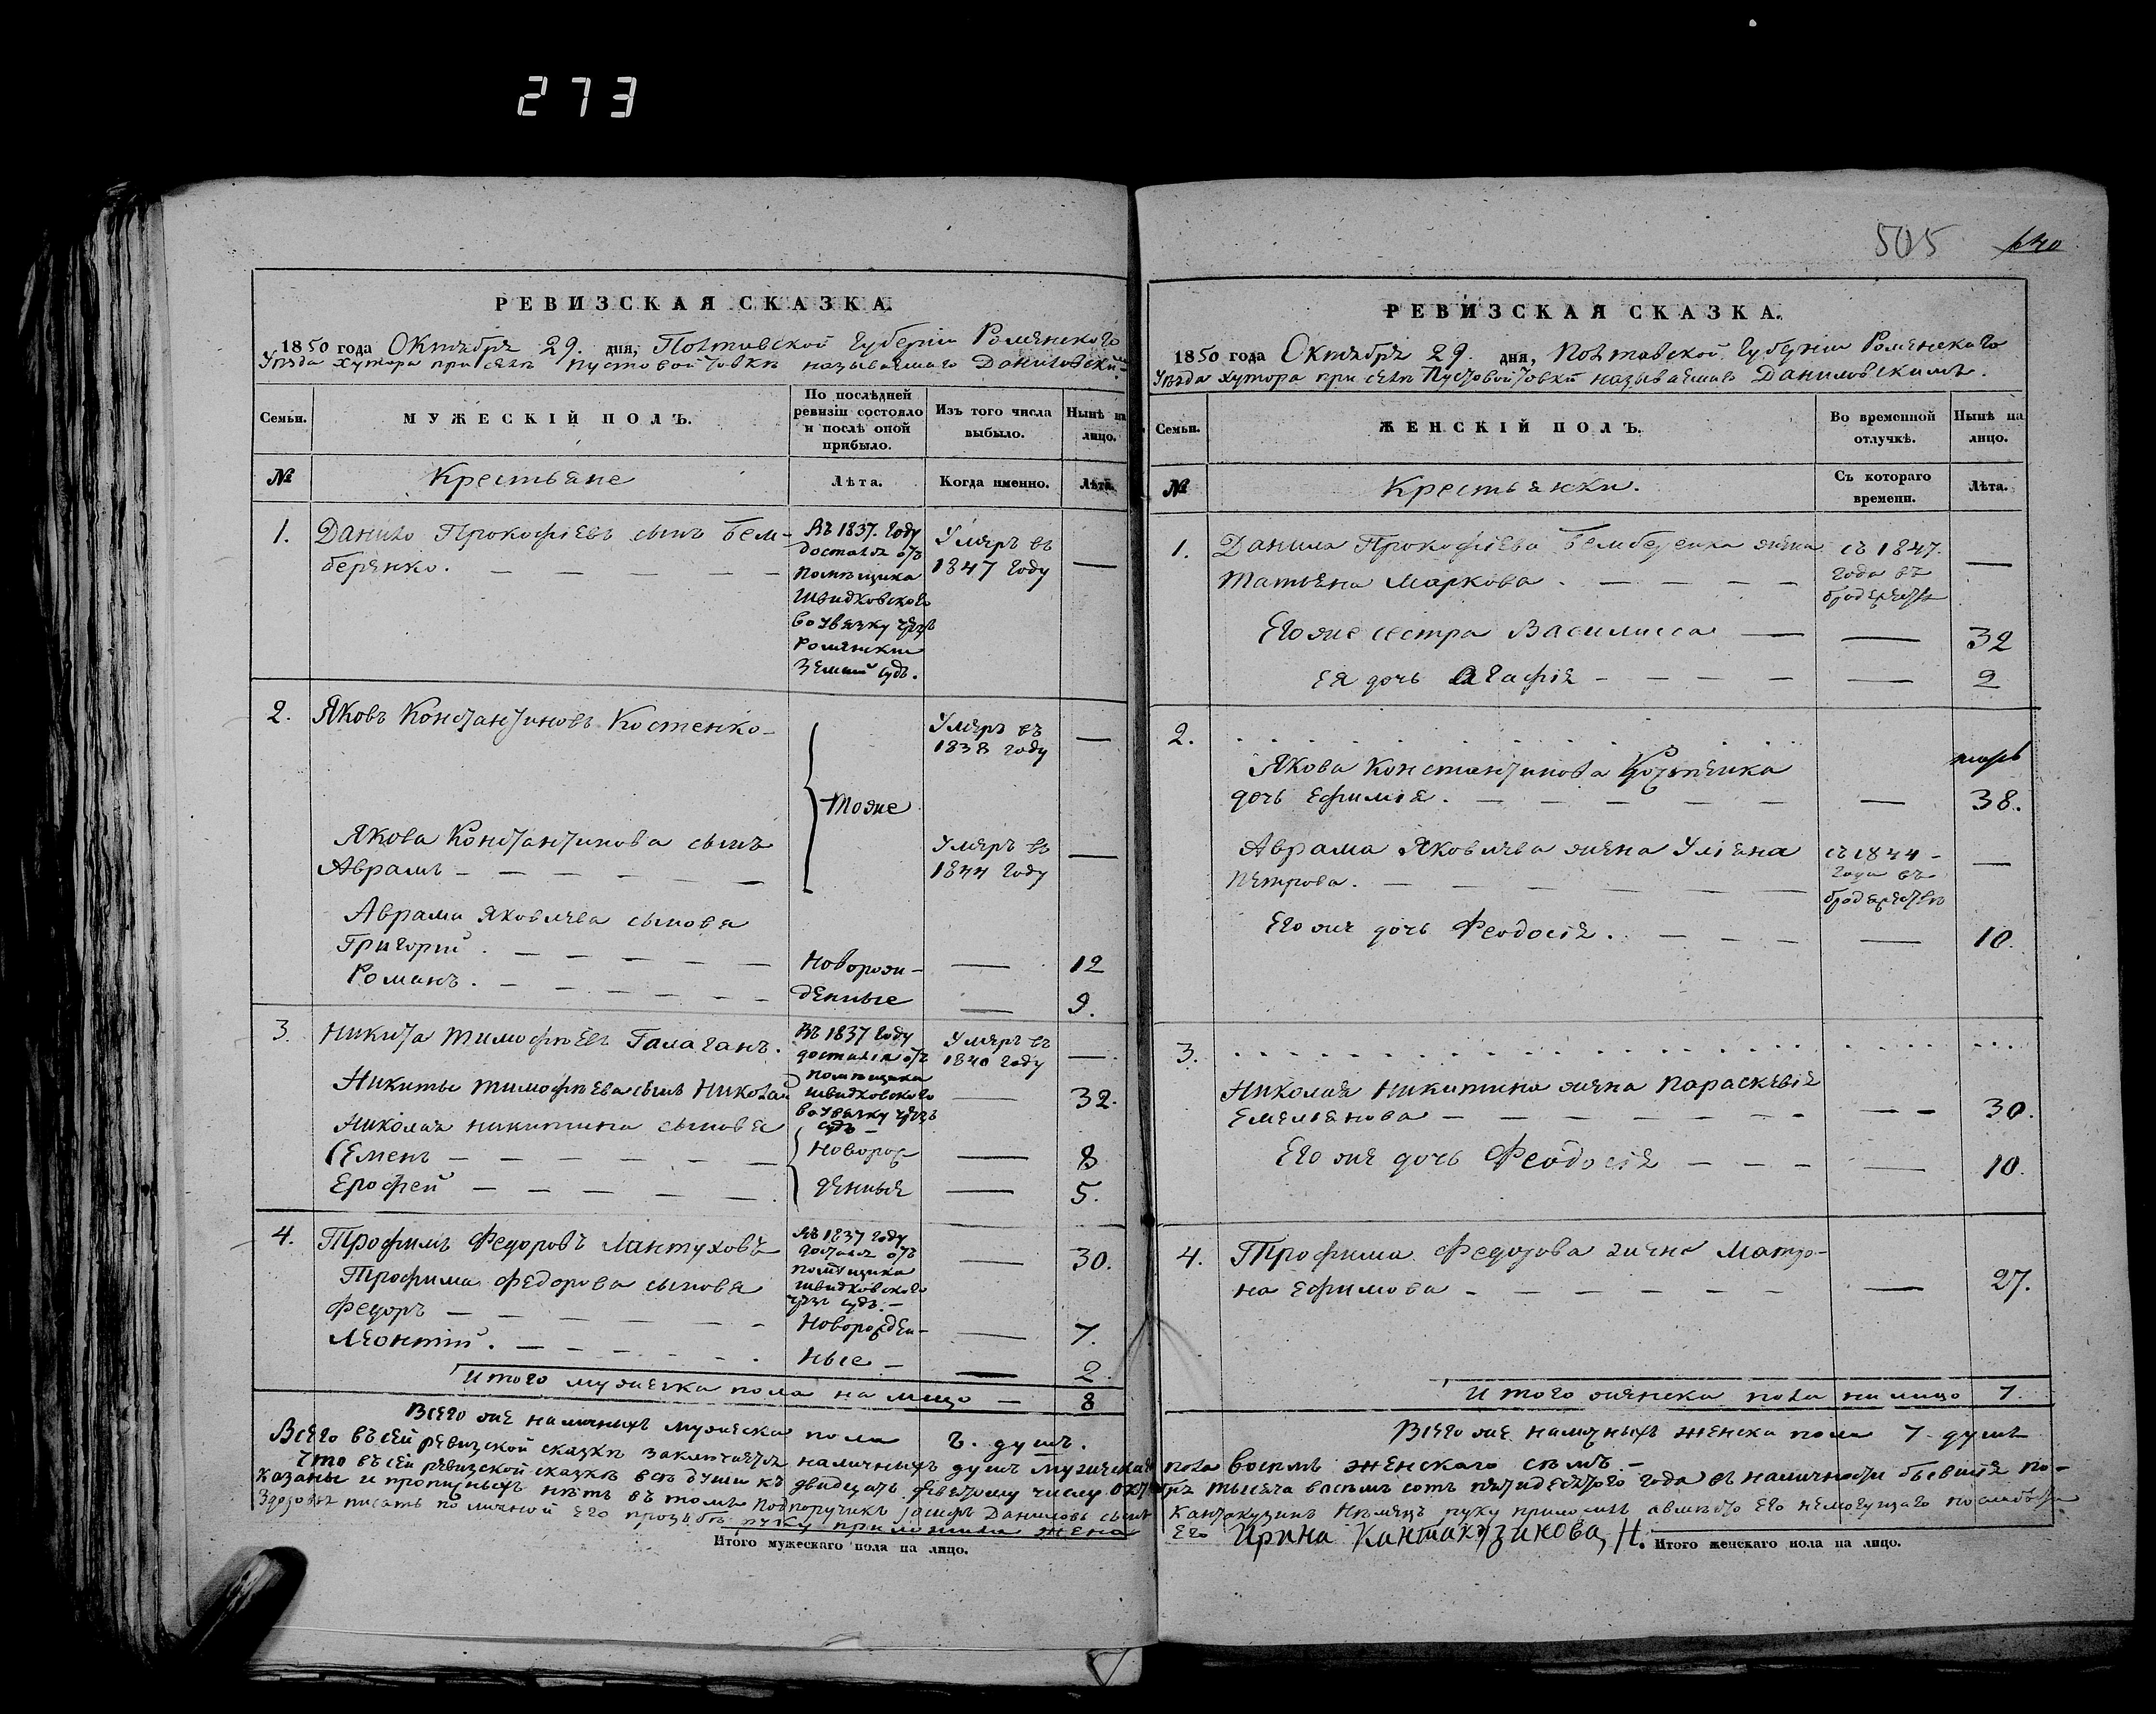 273
505
640
РЕВИЗСКАЯ СКАЗКА.
1850 года Октября 29. дня, Полтавской Губерніи Роменскаго
Уѣзда хутора при селѣ Пустовойтовкѣ называемаго Даниловскимъ
Семьи.
МУЖЕСКІЙ ПОЛЪ.
По послѣдней ревизіи состояло и послѣ оной прибыло.
Изъ того числа выбыло.
Нынѣ на лицо.
№
Крестьяне
Лѣта.
Когда именно.
Лѣта.
1. Данило Прокофіевъ сынъ Бем-
беренко.
Въ 1837. году
достался отъ
помѣщика
Швидковскаго
чрезъ
Роменскій
Земскій судъ.
Умеръ въ
1847 году
—
2. Яковъ Константиновъ Костенко
Умеръ въ
1838 году
—
тоже
Якова Константинова сынъ
Аврамъ
Умеръ въ
1844 году
—
Аврама Яковлева сыновья
Григорій.
Новорож-
— 12
Романъ.
денные
— 9.
3. Никита Тимофѣевъ Галаганъ.
Въ 1837 году
достался отъ
помѣщика
Швидковскаго
чрезъ
судъ
Умеръ въ
1840 году
—
Никиты Тимофѣева сынъ Николай
— 32.
Николая Никитина сыновья
Семенъ
Новорож
— 8
Ерофей
денные
— 5.
4. Трофимъ Федоровъ Лантуховъ
Въ 1837 году
достался отъ
помѣщика
Швидковскаго
чрезъ судъ.
— 30.
Трофима Федорова сыновья
Федоръ
Новорожден-
— 7.
Леонтій.
ные
— 2
Итого мужеска пола на лицо — 8
Всего же наличныхъ мужеска пола 8. душъ.
РЕВИЗСКАЯ СКАЗКА.
1850 года Октября 29. дня, Полтавской Губерніи Роменскаго
Уѣзда хутора при селѣ Пустовойтовкѣ называемаго Даниловскимъ.
Семьи.
ЖЕНСКІЙ ПОЛЪ.
Во временной отлучкѣ.
Нынѣ на лицо.
№
Крестьянки.
Съ котораго времени.
Лѣта.
1. Данила Прокофіева Бемберенка жена
Татьяна Маркова.
съ 1847.
года въ
бродяжествѣ
—
Его же сестра Василиса — — 32
Ея дочь Агафія — — 2
2.
Якова Константинова Костенка
дочь Ефимія. — 38.
Аврама Яковлева жена Уліяна
Петрова.
съ 1844
года въ
бродяжествѣ
—
Его же дочь Феодосія. — 10.
3.
Николая Никитина жена Параскевія
Емеліянова — 30.
Его же дочь Феодосія — 10.
4. Трофима Федорова жена Матро-
на Ефимова — 27.
Итого женска пола на лицо 7.
Всего же наличныхъ женска пола 7 душъ
Всего въ сей ревизской сказкѣ заключается наличныхъ душъ мужескаго пола восемь женскаго семь.
Что въ сей ревизской сказкѣ всѣ души къ двадцать девятому числу Октября тысяча восемь сотъ пятидесятого года въ наличности бывшія по-
казаны и прописныхъ нѣтъ въ томъ Подпоручикъ Іосифъ Даниловъ сынъ Кантакузинъ руку приложилъ а вмѣсто его немогущаго по слабости
здоровья писать по личной его прозьбѣ руку приложила жена его Ирина Кантакузинова Н.
Итого мужескаго пола на лицо.
Итого женскаго пола на лицо.